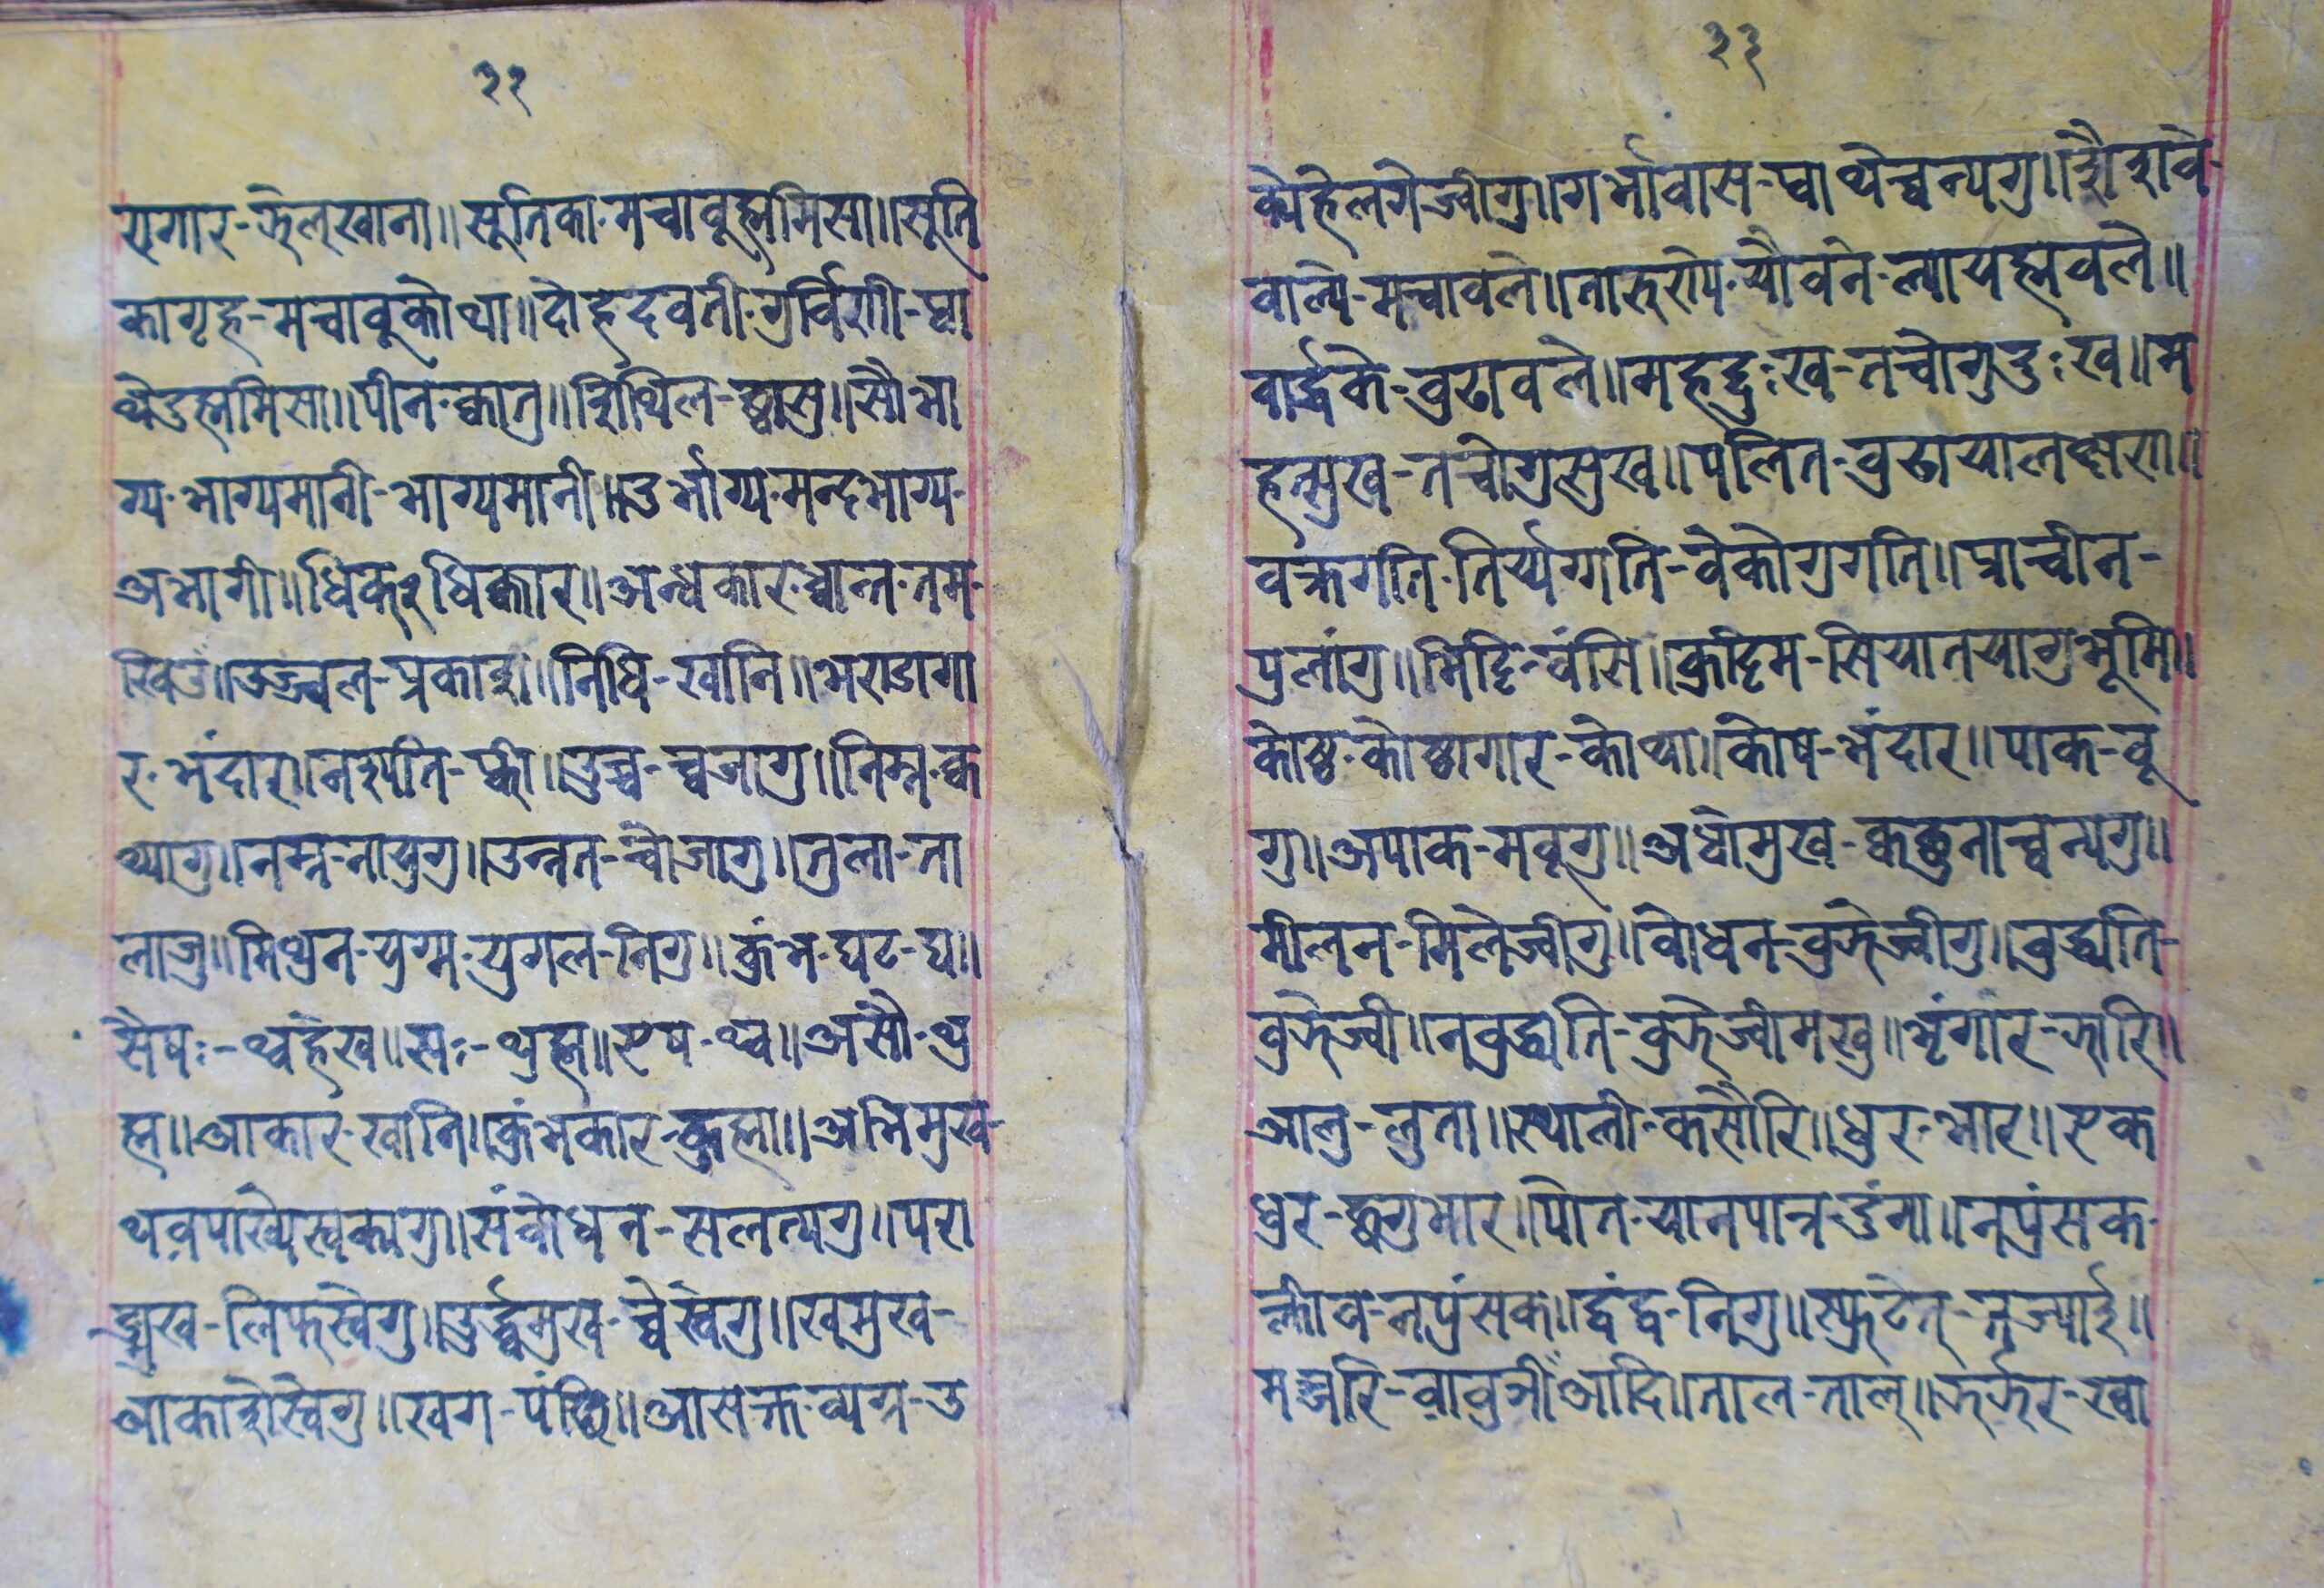 २२
रागार-झेल्खाना॥सूतिका-मचाबूह्ममिसा॥सूति
कागृह-मचाबूकोथा॥दोहदवती-गुर्विणी-प्वा
थेदुह्ममिसा॥पीन-क्वातु॥शिथिल-छ्वासु॥सौभा
ग्य-भाग्यमानी-भाग्यमानी॥दुर्भाग्य-मन्दभाग्य-
अभागी॥धिक्२धिक्कार॥अन्धकार-ध्वान्त-तम-
खिउं॥उज्ज्वल-प्रकाश॥निधि-खानि॥भण्डागा
र-भंदार॥नश्यति-फ्की॥उच्च-च्वजागु॥निम्न-क्व
थ्यागु॥नम्न-नायुगु॥उन्नत-चोजागु॥तुला-ता
लाजु॥मिथुन-युग्म-युगल-निगु॥कुंभ-घट-घ॥
सैषः-थ्वहेख॥सः-थुह्म॥एष-थ्व॥असौ-थु
ह्म॥आकार-खानि॥कुंभकार-कुह्मा॥अभिमुख-
थवपाख्येस्वकागु॥संबोधन-सलत्यगु॥परा
ङ्मुख-लिफस्वेगु॥उर्द्ध्वमुख-च्वेस्वेगु॥खमुख-
आकाशेस्वेगु॥खग-पंछि॥आसक्त-व्यग्र-उ
२३
क्येहेलगेज्वीगु॥गर्भावास-प्वाथेच्वन्यगु॥शैशवे-
बाल्ये-मचाबले॥तारुण्ये-यौवने-ल्यायह्मबले॥
वार्द्धके-बुढाबले॥महद्दुःख-तचोगुदुःख॥म
हत्सुख-तचोगुसुख॥पलित-बुढायालक्षण॥
वक्रगति-तिर्य्यग्गति-वेकोगुगति॥प्राचीन-
पुलांगु॥भिट्टि-वंसि॥कुट्टिम-सियातयागुभूमि॥
कोष्ठ-कोष्ठागार-कोथा॥कोष-भंदार॥पाक-बू
गु॥अपाक-मबूगु॥अधोमुख-क्वछुनाच्वन्यगु॥
मीलन-मिलेज्वीगु॥बोधन-बुझेज्वीगु॥बुद्ध्यति-
बुझेज्वी॥नबुद्ध्यति-बुझेज्वीमखु॥भृंगार-झारि॥
आलु-लुता॥स्थाली-कसौरि॥धुर-भार॥एक
धुर-छगुभार॥पोत-यानपात्र-डुंगा॥नपुंसक-
क्लीव-नपुंसक॥द्वंद्व-निगु॥स्फुटेत्-तज्याई॥
मञ्जरि-वावुञीआदि॥ताल-ताल्॥झर्झर-ख्वा